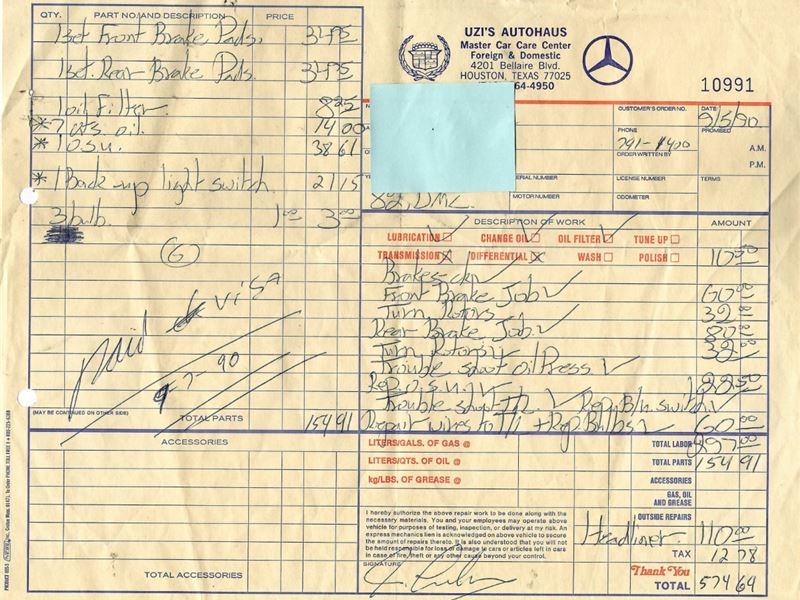 QTY. PART NO. AND DESCRIPTION PRICE
1 set Front Brake Pads. 34 95
1 set. Rear Brake Pads. 34 95
1 oil Filter. 8 25
* 7 qts. oil. 14 00
* 1 o.s.u. 38 61
* 1 Back up light switch. 21 15
3 bulb. 1 00 3 00
6
paid VISA
9-7-90
(MAY BE CONTINUED ON OTHER SIDE)
TOTAL PARTS 154 91
ACCESSORIES
TOTAL ACCESSORIES
UZI'S AUTOHAUS
Master Car Care Center
Foreign & Domestic
4201 Bellaire Blvd.
HOUSTON, TEXAS 77025
64-4950
10991
CUSTOMER'S ORDER NO. DATE 9/5/90.
PHONE 791-1400 PROMISED
A.M.
P.M.
ORDER WRITTEN BY
SERIAL NUMBER LICENSE NUMBER TERMS
MOTOR NUMBER ODOMETER
82, DMC
DESCRIPTION OF WORK AMOUNT
LUBRICATION CHANGE OIL OIL FILTER TUNE UP
TRANSMISSION DIFFERENTIAL WASH POLISH 10 50
Brakes-ck
Front Brake Job 60 00
Turn Rotors 32 00
Rear Brake Job. 80 00
Turn Rotors 32 00
Trouble shoot oil Press.
Rep. o.s.u.
Trouble shoot Rep. B/u. switch
Repair wires to T/l + Rep. Bulbs 60 00
LITERS/GALS. OF GAS @ TOTAL LABOR 297 00
LITERS/QTS. OF OIL @ TOTAL PARTS 154 91
kg/LBS. OF GREASE @ ACCESSORIES
GAS, OIL AND GREASE
I hereby authorize the above repair work to be done along with the
necessary materials. You and your employees may operate above
vehicle for purposes of testing, inspection, or delivery at my risk. An
express mechanics lien is acknowledged on above vehicle to secure
the amount of repairs thereto. It is also understood that you will not
be held responsible for loss or damage to cars or articles left in cars
in case of fire, theft or any other cause beyond your control.
SIGNATURE
OUTSIDE REPAIRS
Headliner 110 00
TAX 12 78
Thank You
TOTAL 574 69